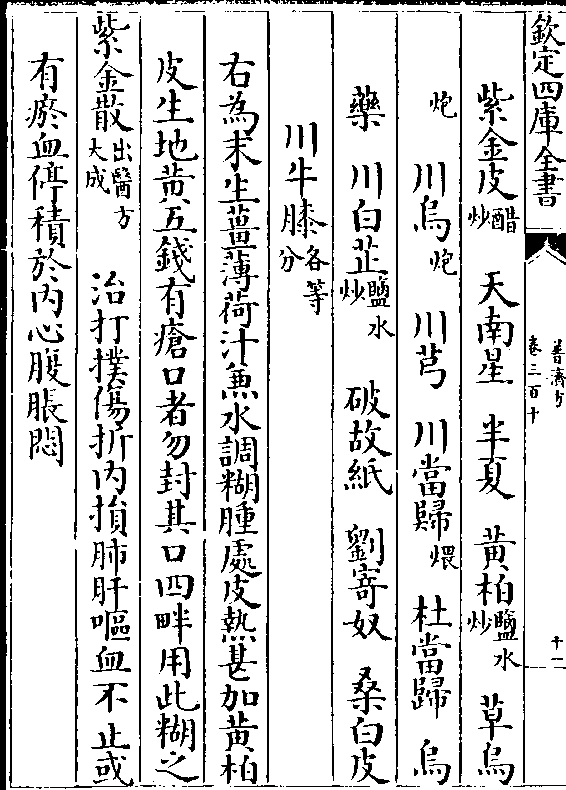 欽定四庫全書
普濟方
卷三百十
十一
紫金皮醋炒 天南星 半夏 黄柏鹽水炒 草烏
炮 川烏炮 川芎 川當歸煨 杜當歸 烏
藥 川白芷鹽水炒 破故紙 劉寄奴 桑白皮
川牛膝各等分
右為末生薑薄荷汁兼水調糊腫處皮熱甚加黄柏
皮生地黄五錢有瘡口者勿封其口四畔用此糊之
紫金散出醫方大成 治打撲傷折内損肺肝嘔血不止或
有瘀血停積於内心腹脹悶